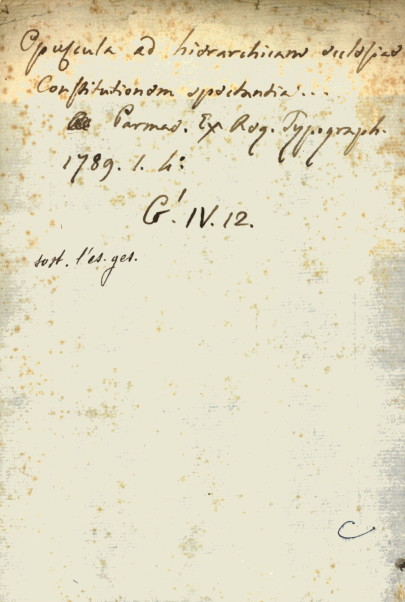 Opuscula ad hierarchicam ecclesiae
Constitutionem spectantia...
Parmae. Ex Reg. Typograph.
1789. 1. 4:
G'. IV. 12.
sost. l'es. ges.
C